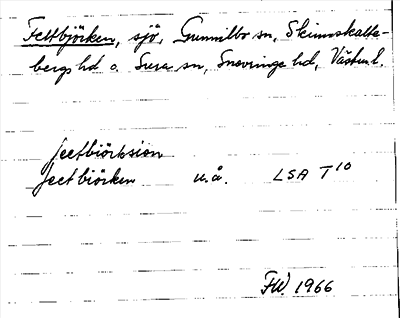 Fettbjörken, sjö, Gunnilbo sn, Skinnskatte-
bergs hd o. Sura sn, Snevringe hd, Västml.
feetbiörksion
feetbiörken u.å. LSA T10
FW 1966